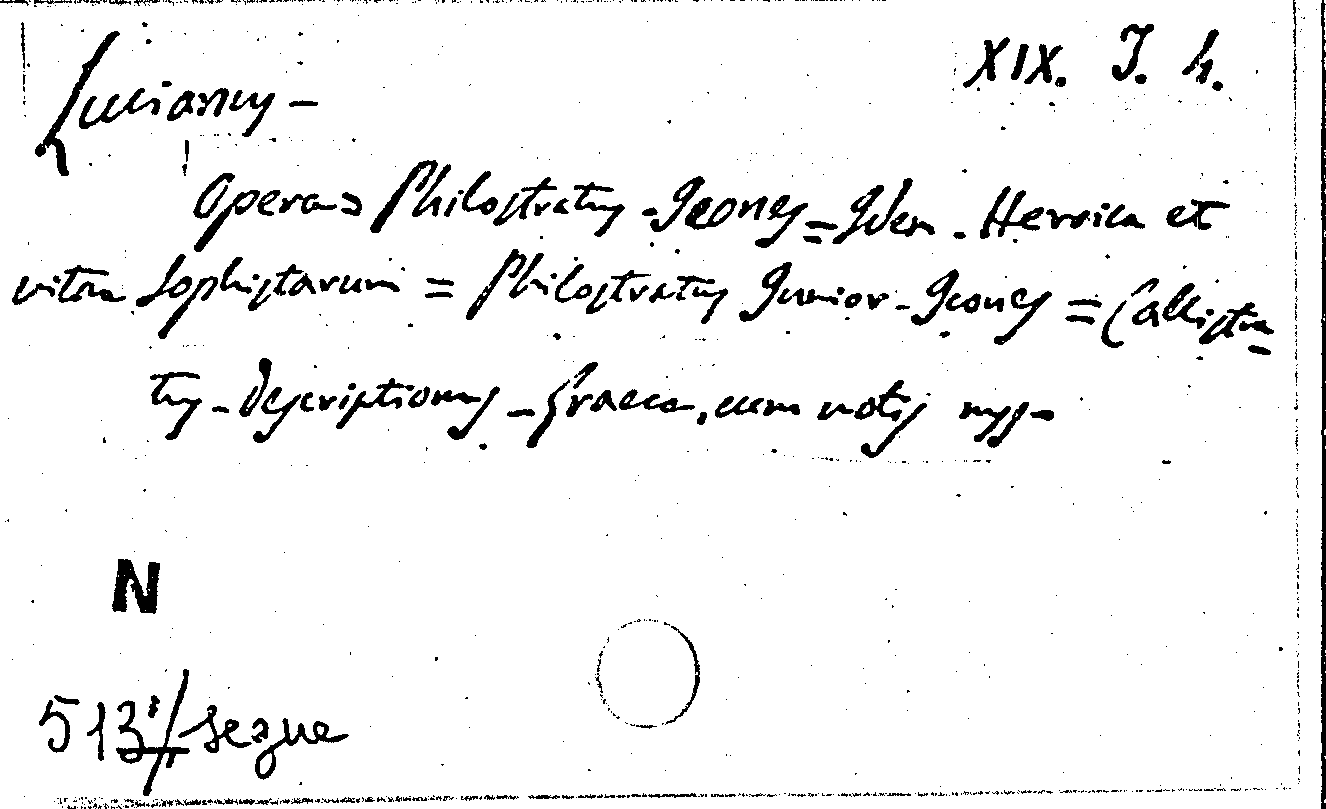 XIX. I. 4.
Lucianus -
Opera = Philostratus - Icones = Idem - Heroica et
vitae Sophistarum = Philostratus Junior - Icones = Callistra=
tus - Descriptiones - Graece, cum notis mss.
N
513 / segue